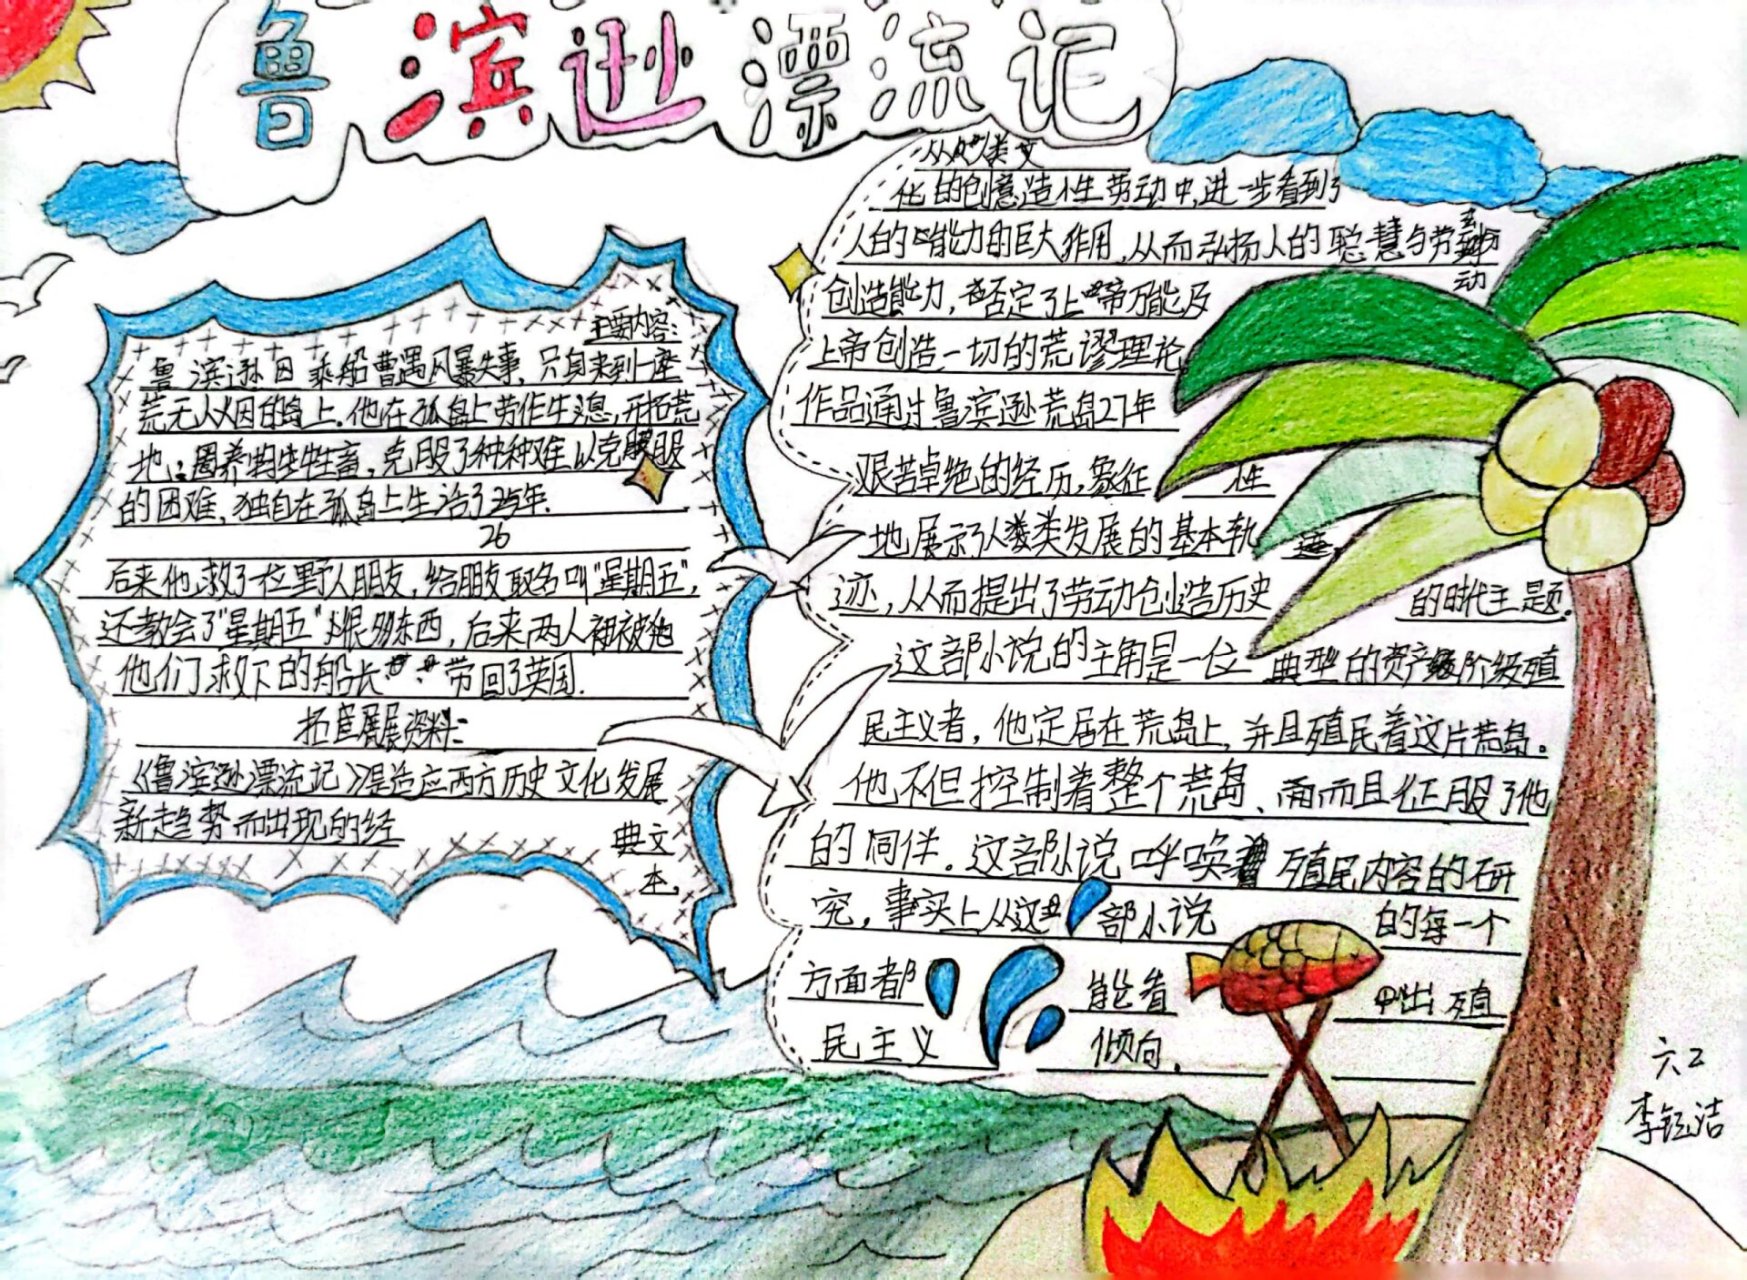 鲁滨逊漂流记
主要内容：
鲁滨逊因乘船曹遇风暴失事，只身来到一座
荒无人烟的岛上。他在孤岛上劳作生息，开拓荒
地；圈养牲畜，克服了种种难以克服
的困难，独自在孤岛上生活了
26
后来他救了一位野人朋友，给朋友取名叫"星期五"，
还教会了"星期五"很多东西，后来两人被他
他们救下的船长带回了英国。
拓展资料：
《鲁滨逊漂流记》是适应西方历史文化发展
新趋势而出现的经
典文
本。
从人类文
化的创意造性劳动中，进一步看到了
人的能力的巨大作用，从而弘扬人的聪慧与劳
动
创造能力，否定了上帝万能及
上帝创造一切的荒谬理论。
作品通过鲁滨逊荒岛27年
艰苦卓绝的经历，象征 性
地展示了人类发展的基本轨
迹，从而提出了劳动创造历史 的时代主题。
这部小说的主角是一位 典型的资产阶级殖
民主义者，他定居在荒岛上，并且殖民着这片荒岛。
他不但控制着整个荒岛、而且征服了他
的同伴。这部小说呼唤着 殖民内容的研
究，事实上从这 部小说 的每一个
方面都 能看 出殖
民主义 倾向。
六2
李钰洁